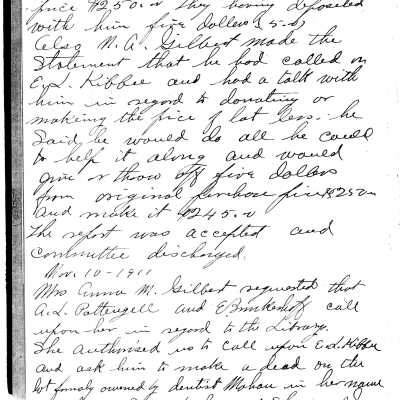 price $250.00 they having deposited
with him five dollars $5.00
Also N. A. Gilbert made the
statement that he had called on
E. L. Kibbee and had a talk with
him in regard to donating or
makeing the price of lot less. he
said he would do all he could
to help it along and would
give or throw off five dollars
from original purchase price $250.00
and make it $245.00
The report was accepted and
committee discharged.
Nov. 10 - 1911
Mrs Anna M. Gilbert requested that
A. L. Pattengell and E Brinkerhoff call
upon her in regard to the Library.
She authorised us to call upon E. L. Kibbee
and ask him to make a deed on the
lot formaly owened by dentist Mahan in her name